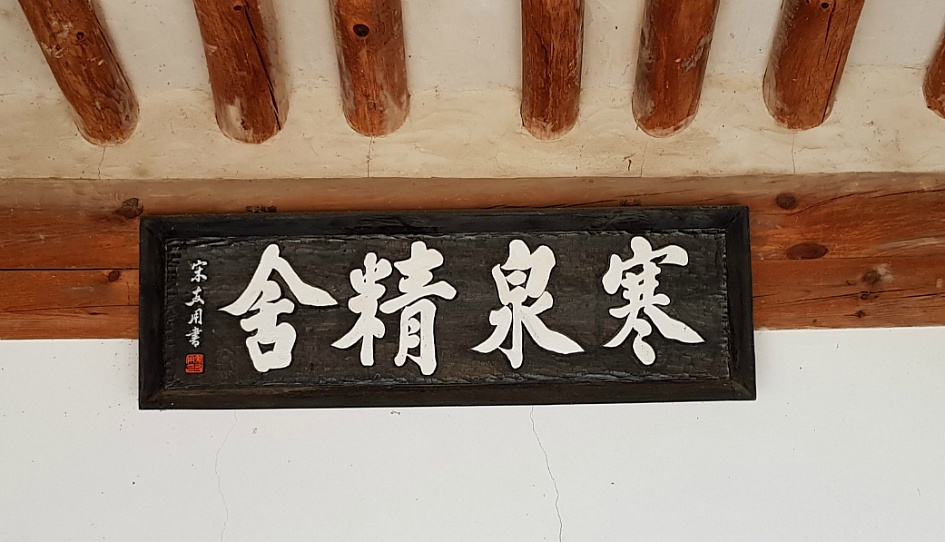 寒泉精舍
宋友用書